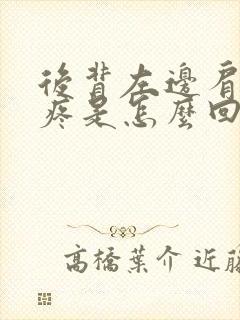 後背左邊肩
疼是怎麼回
高橋葉介 近藤